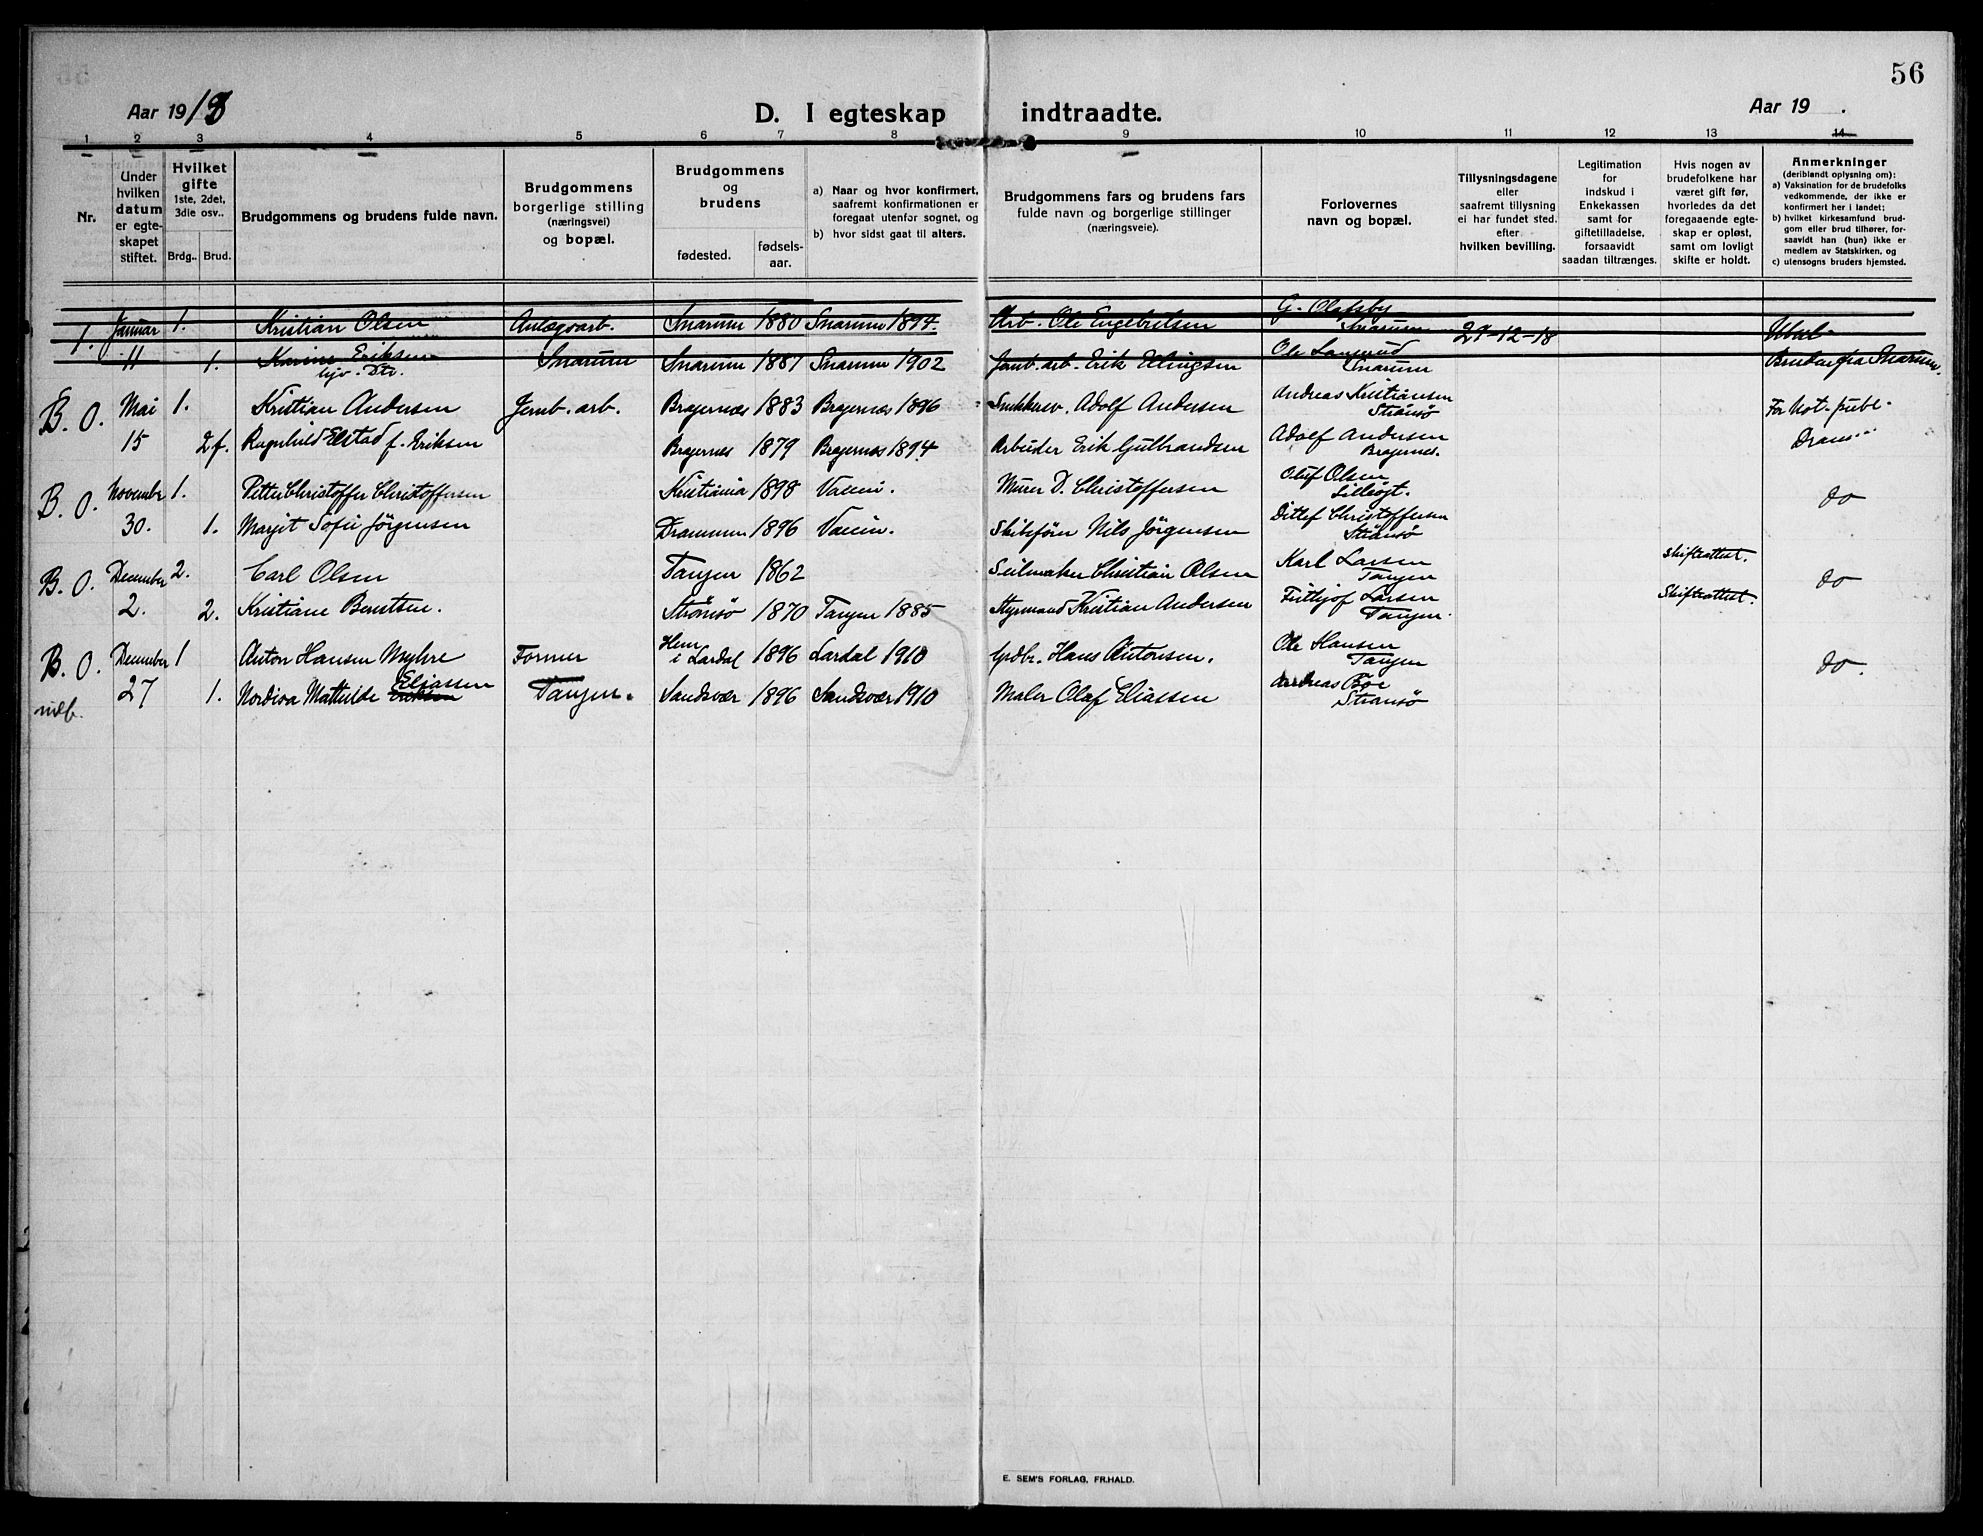 56
Aar 1918
D. I egteskap indtraadte.
Aar 19 .
1 2 3 4 5 6 7 8 9 10 11 12 13 14
Nr.
Under hvilken datum er egte-skapet stiftet.
Hvilket gifte 1ste, 2det, 3die osv..
Brdg.. Brud.
Brudgommens og brudens fulde navn.
Brudgommens borgerlige stilling (næringsvei) og bopæl.
Brudgommens og brudens
fødested. fødsels-aar.
a) Naar og hvor konfirmert, saafremt konfirmationen er foregaat utenfor sognet, og
b) hvor sidst gaat til alters.
Brudgommens fars og brudens fars fulde navn og borgerlige stillinger (næringsveie).
Forlovernes navn og bopæl.
Tillysningsdagene eller saafremt tillysning ei har fundet sted. efter hvilken bevilling.
Legitimation for indskud i Enkekassen samt for giftetilladelse, forsaavidt saadan tiltrænges.
Hvis nogen av brudefolkene har været gift før, hvorledes da det foregaaende egte-skap er opløst, samt om lovligt skifte er holdt.
Anmerkninger (deriblandt oplysning om):
a) Vaksination for de brudefolks vedkommende, der ikke er konfirmert her i landet;
b) hvilket kirkesamfund brud-gom eller brud tilhører, for-saavidt han (hun) ikke er medlem av Statskirken, og
c) utensogns bruders hjemsted.
1. Januar 1. Kristian Olsen Anlægsarb. Snarum 1880 Snarum 1894. Arb. Ole Engebretsen G. Olafsby Snarum 29-12-18
11 1. Karine Eriksen Snarum Snarum 1881 Snarum 1902 Jernb. arb. Erik Ellingsen Ole Snarum Bruden fra Snarum.
hjv. Dtr.
B. O. Mai 1. Kristian Andersen Jernb. arb. Bragernes 1883 Bragernes 1896 Snikkersv. Adolf Andersen Andreas Kristiansen Strømsø For Not. publ.
15 2 f. Ragnhild Elstad f. Eriksen Bragernes 1879 Bragernes 1894 Arbeider Erik Gulbrandsen Adolf Andersen Bragernes. Dram
B. O. November 1. Petter Christoffer Christoffersen Kristiania 1898 Murer D. Christoffersen Oluf Olsen do
30. 1. Margit Sofie Jörgensen Drammen 1896 Skibsförer Nils Jörgensen Ditlef Christoffersen Strømsø
B. O. December 2. Carl Olsen Tangen 1862 Seilmaker Christian Olsen Karl Larsen Tangen Skiftrattest. do
2. 2. Kristiane Berntsen. Strømsø 1870 Tangen 1885 Styrmand Kristian Andersen Frithjof Larsen Tangen. Skiftrattest.
B. O. December 1 Anton Hansen Myhre Former Hem i Lardal 1896 Lardal 1910 Grdbr. Hans Antonsen. Ole Hansen Tangen do.
27 1. Nordiva Mathilde Eliassen Tangen. Sandsvær 1896 Sandsvær 1910 Maler Olaf Eliassen Andreas Bøe Strømsø
E. SEM'S FORLAG, FR.HALD.